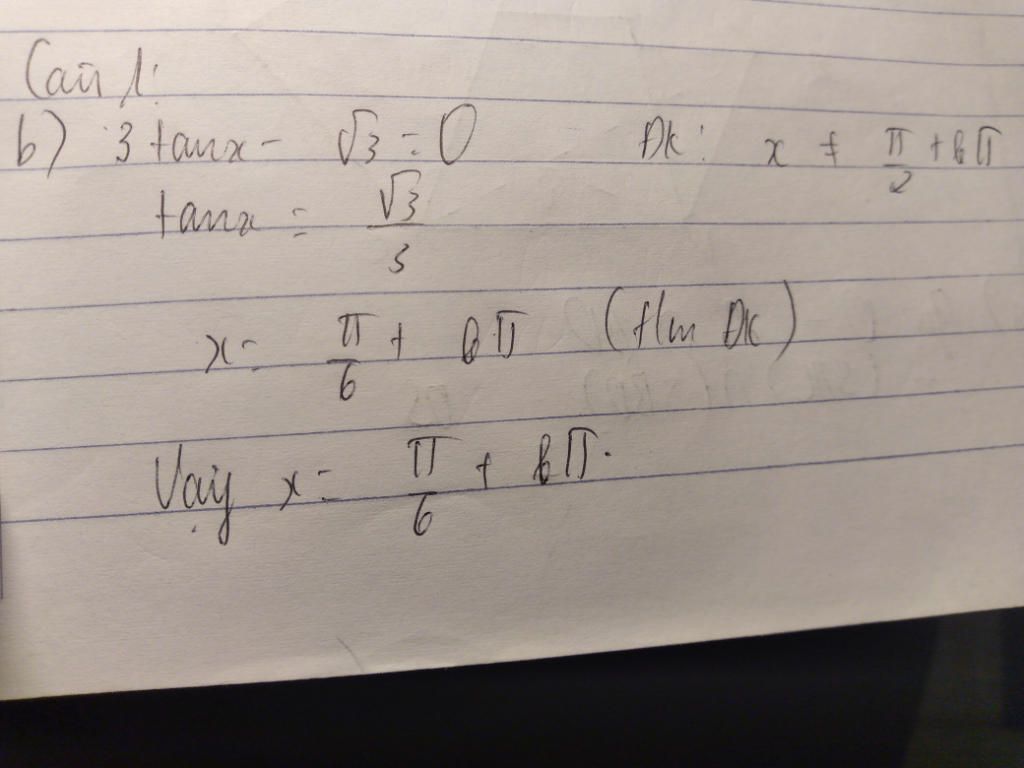 Câu 1:
b) 3 tanx - √3 = 0 ĐK: x ≠ π/2 + kπ
tanx = √3/3
x = π/6 + kπ (t/m ĐK)
Vậy x = π/6 + kπ.